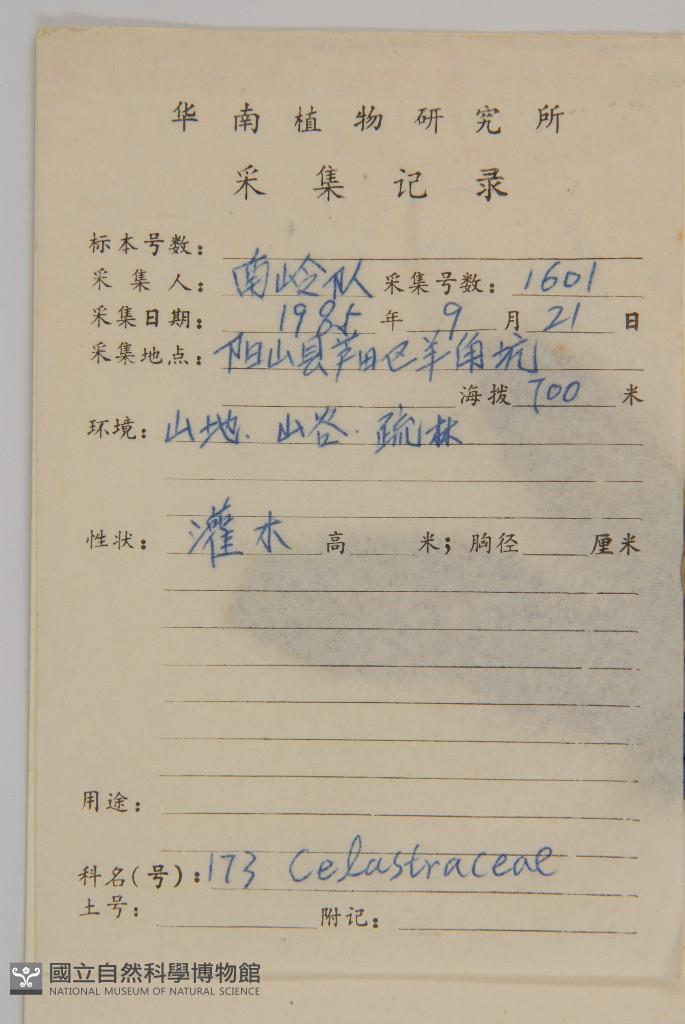 华南植物研究所
采集记录
标本号数：
采集人：南岭队 采集号数：1601
采集日期：1985年9月21日
采集地点：阳山县芦田巳羊角坑
海拨700米
环境：山地．山谷．疏林
性状：灌木 高 米；胸径 厘米
用途：
科名(号)：173 Celastraceae
土号： 附记：
國立自然科學博物館
NATIONAL MUSEUM OF NATURAL SCIENCE